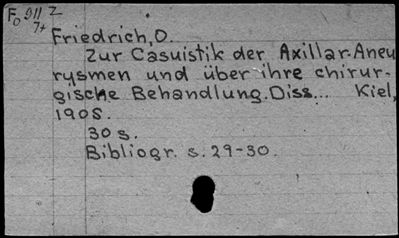 Fo 911 Z
7+
Friedrich, O.
Zur Casuistik der Axillar-Aneu
rysmen und über ihre chirur-
gische Behandlung. Diss... Kiel,
1908.
30 s.
Bibliogr. s. 29-30.